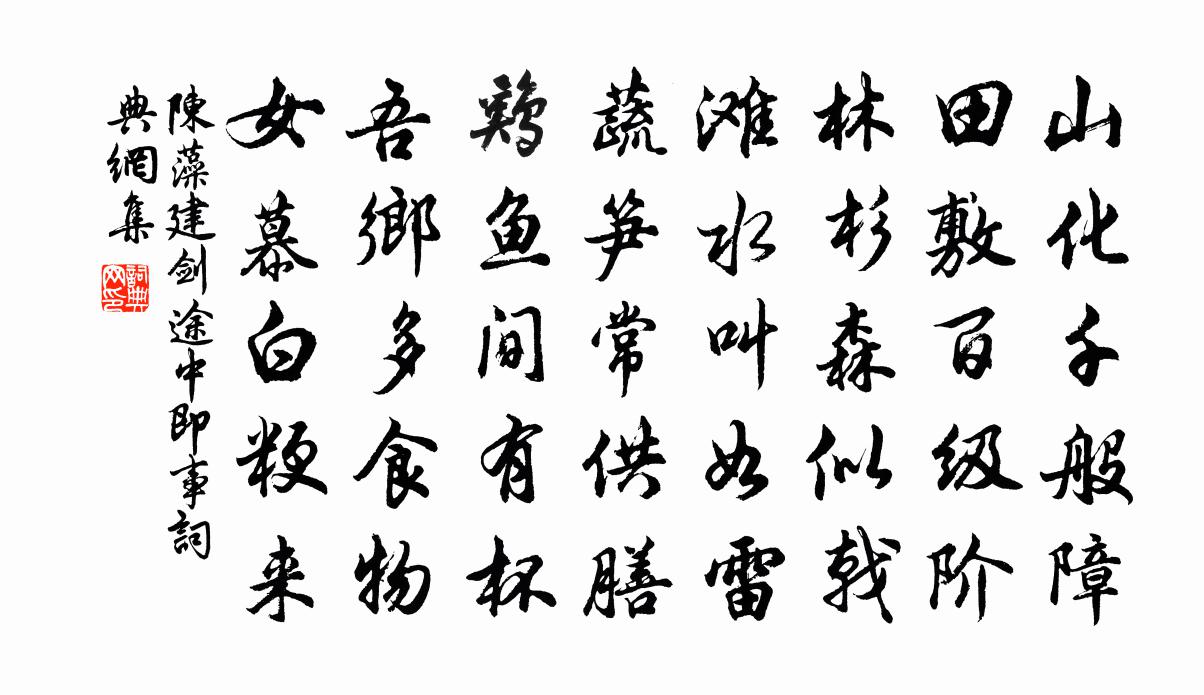 山化千般障
田敷百级阶
林杉森似戟
滩水叫如雷
蔬笋常供膳
鷄鱼间有杯
吾鄉多食物
女慕白粳来
陳藻建剑途中即事詞
典網集
詞典网印